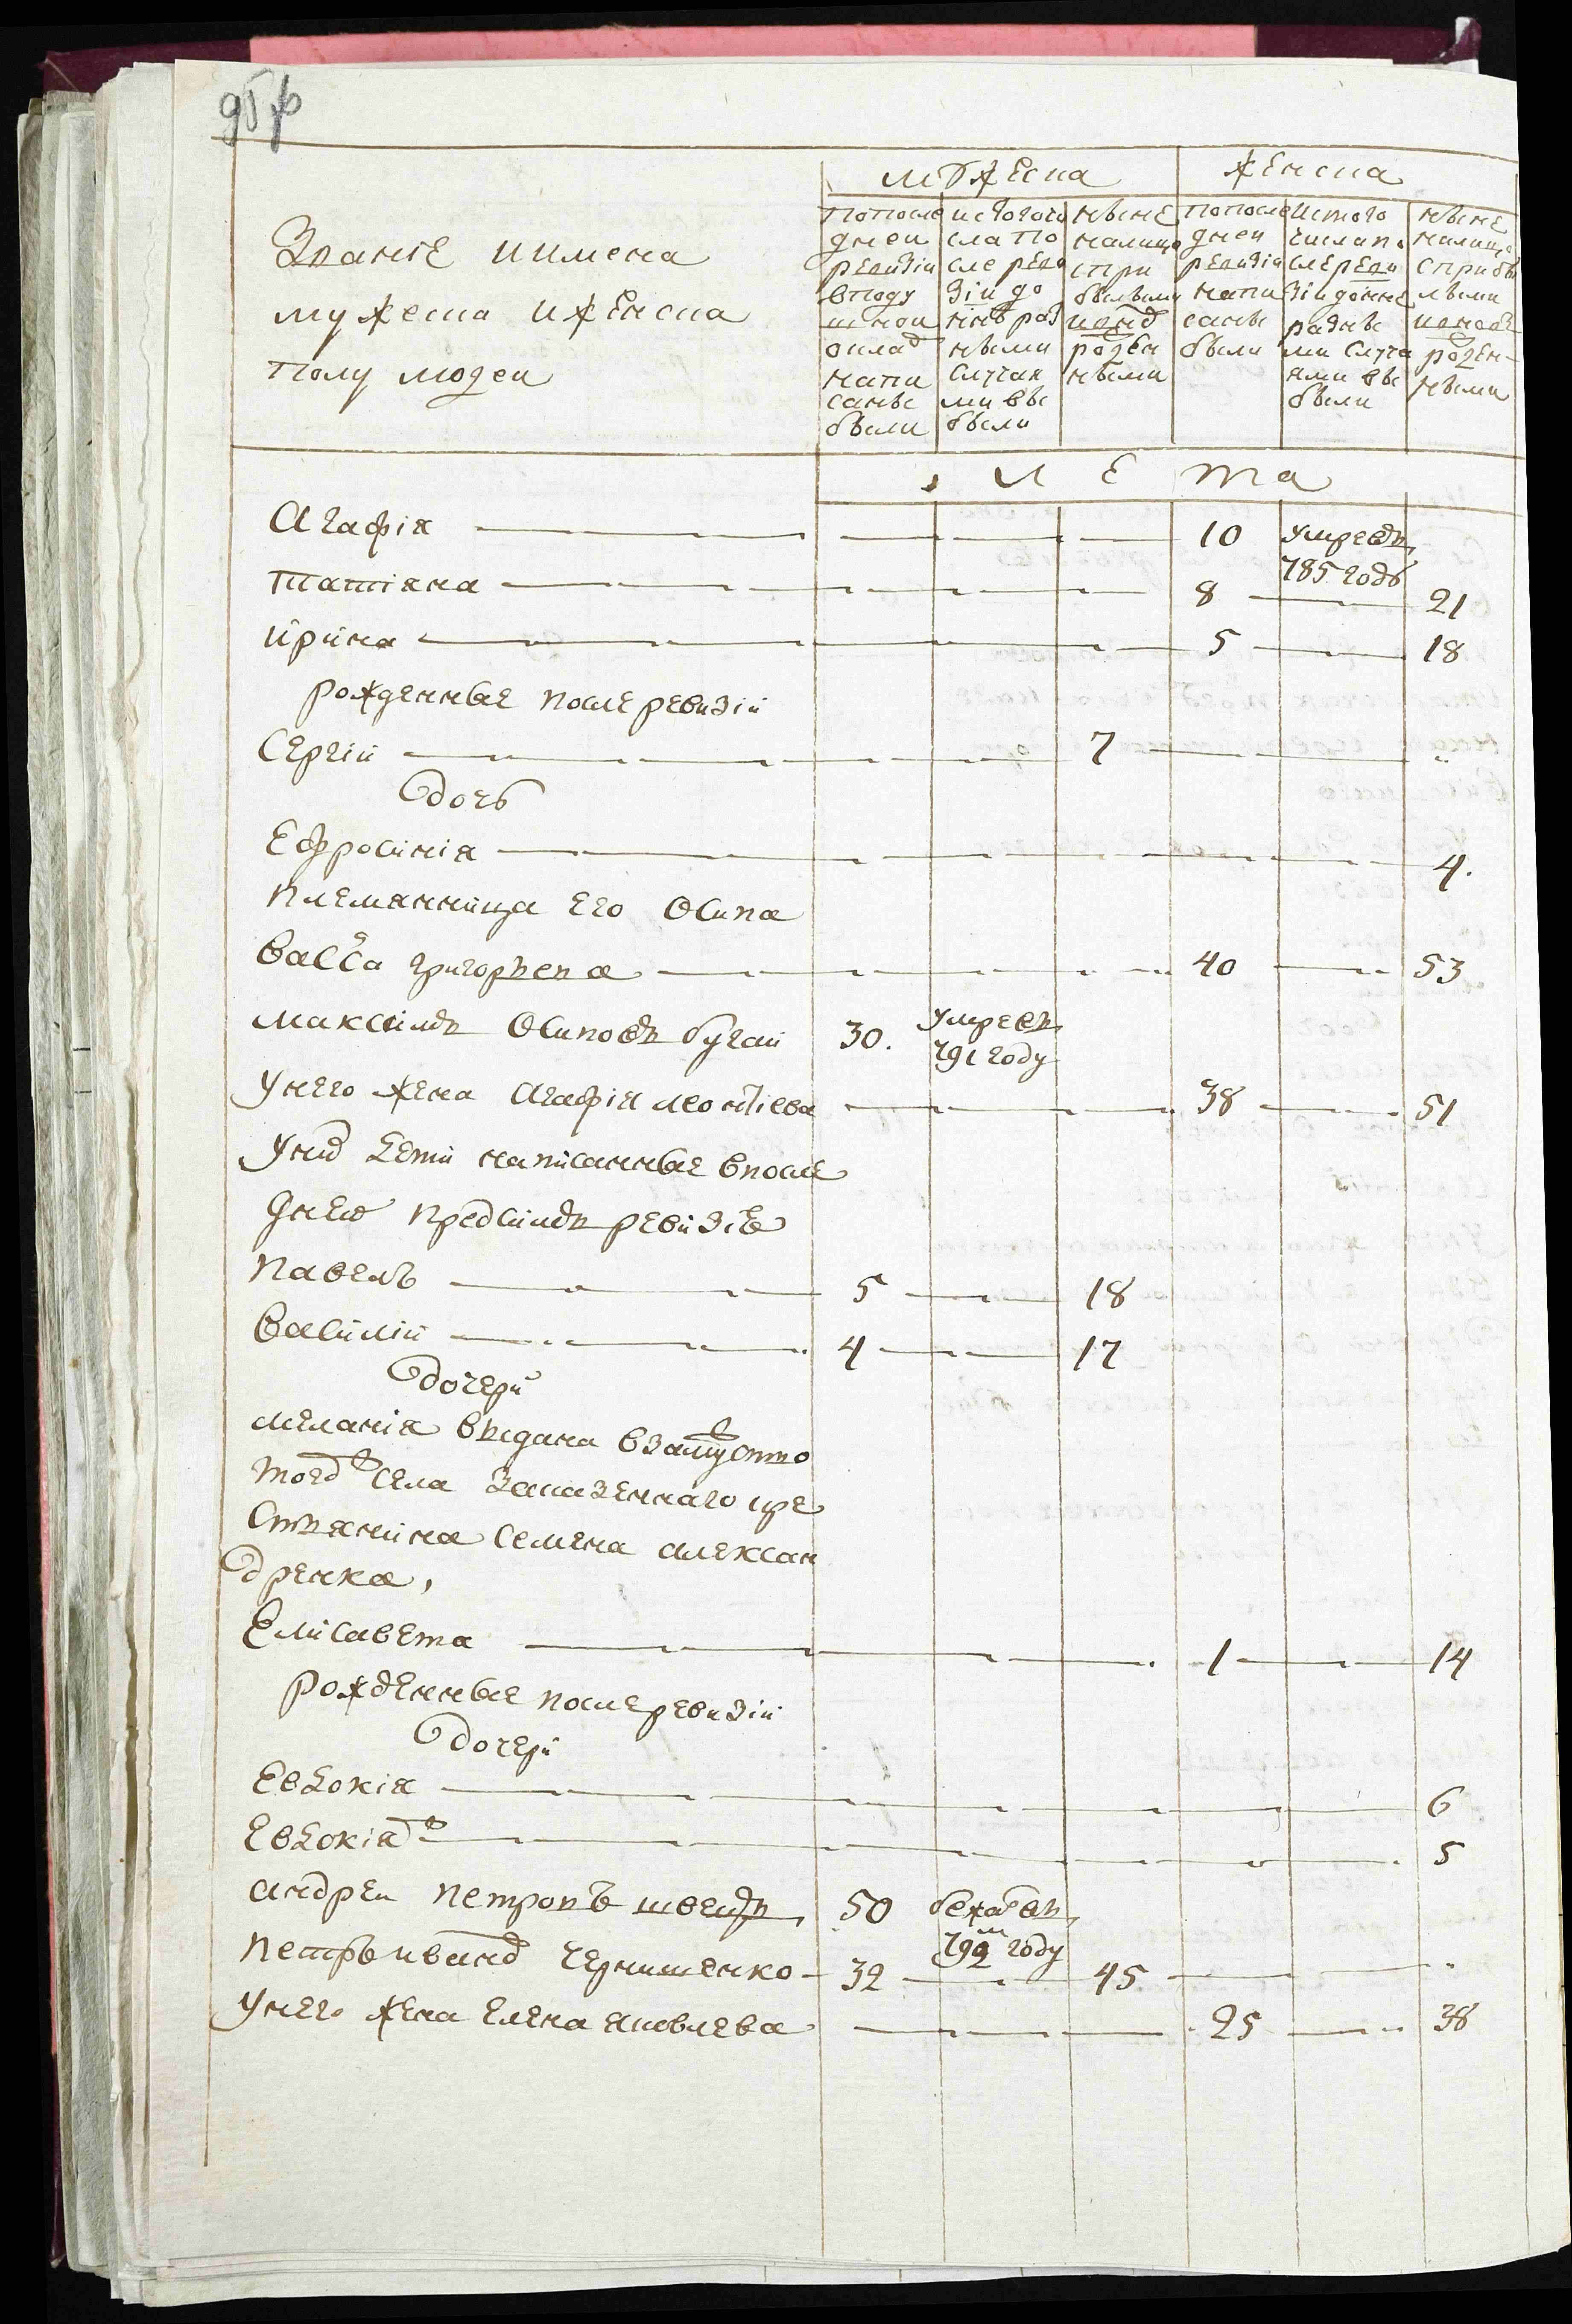 мужеска женска
Званіе и имена
мужеска и женска
полу людеи
по после
днеи
ревизіи
в поду
шнои
оклад
напи
саны
были
ис того чи
сла по
сле реви
зіи до
ннѣ раз
ными
случая
ми вы
были
ныне
налицо
с при
былыми
и вновь
рожден
ными
по после
днеи
ревизіи
напи
саны
были
ис того
числа по
сле реви
зіи до нне
разны
ми случа
ями вы
были
ныне
налицо
с прибы
лыми
и вновь
рожден-
ными
лета
Агафія 10 умре въ
785 годѣ
татіяна 8 21
ирина 5 18
рожденные после ревизіи
Сергіи 7
дочь
Ефросинія 4.
племянница его Осипа
Васса григорьева 40 53
максимъ Осиповъ бугаи 30. умре въ
791 году
у него жена Агафія леонтіева 38 51
у них дети написанные в после
днею пред симъ ревизіе
павелъ 5 18
василіи 4 17
дочери
меланія выдана в замужство
тогож села казеннаго кре
стьянина семена алексан
дренка,
Елисавета 1 14
рожденные после ревизіи
дочери
Евдокія 6
Евдокіяж 5
андреи петровъ швецъ 50 бежа въ
792 году
петръ иванов чернишенко 32 45
у него жена елена яковлева 25 38